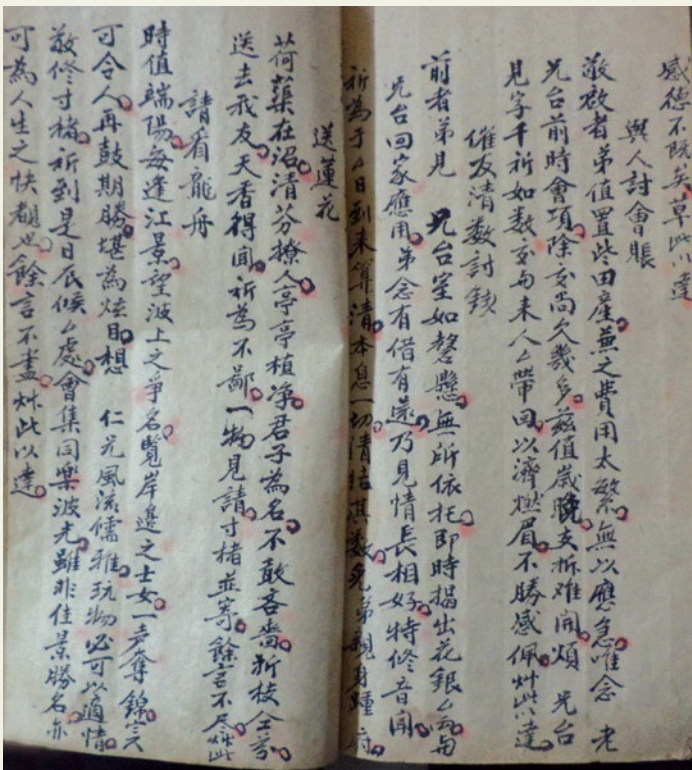 感德不既矣草此以達
與人討會賬
敬啟者弟值置些田產兼之費用太繁無以應急唯念 老
兄台前時會項除交尚欠幾多茲值歲晚支拆难開煩 兄台
見字千祈如数交与来人厶帶回以濟燃眉不勝感佩艸此以達
催友清数討錢
前者弟見 兄台室如罄懸無所依托即時揭出花銀厶两与
兄台回家應用弟念有借有還乃見情長相好特修音聞
祈為于厶日到来算清本息一切清结其数免弟親身踵府
送蓮花
荷蕖在沼清芬撩人亭亭植净君子為名不敢吝嗇折枝仝
送去我友天香得聞祈為不鄙一物見請寸楮並寄餘言不尽艸此
請看龍舟
時值端陽每逢江景望波上之爭名覽岸邊之士女一声奪錦实
可令人再鼓期勝堪為炫目想 仁兄風流儒雅玩物必可以適情
敬修寸楮祈到是日辰候厶處會集同樂波光雖非佳景勝名亦
可為人生之快覩也餘言不盡艸此以達